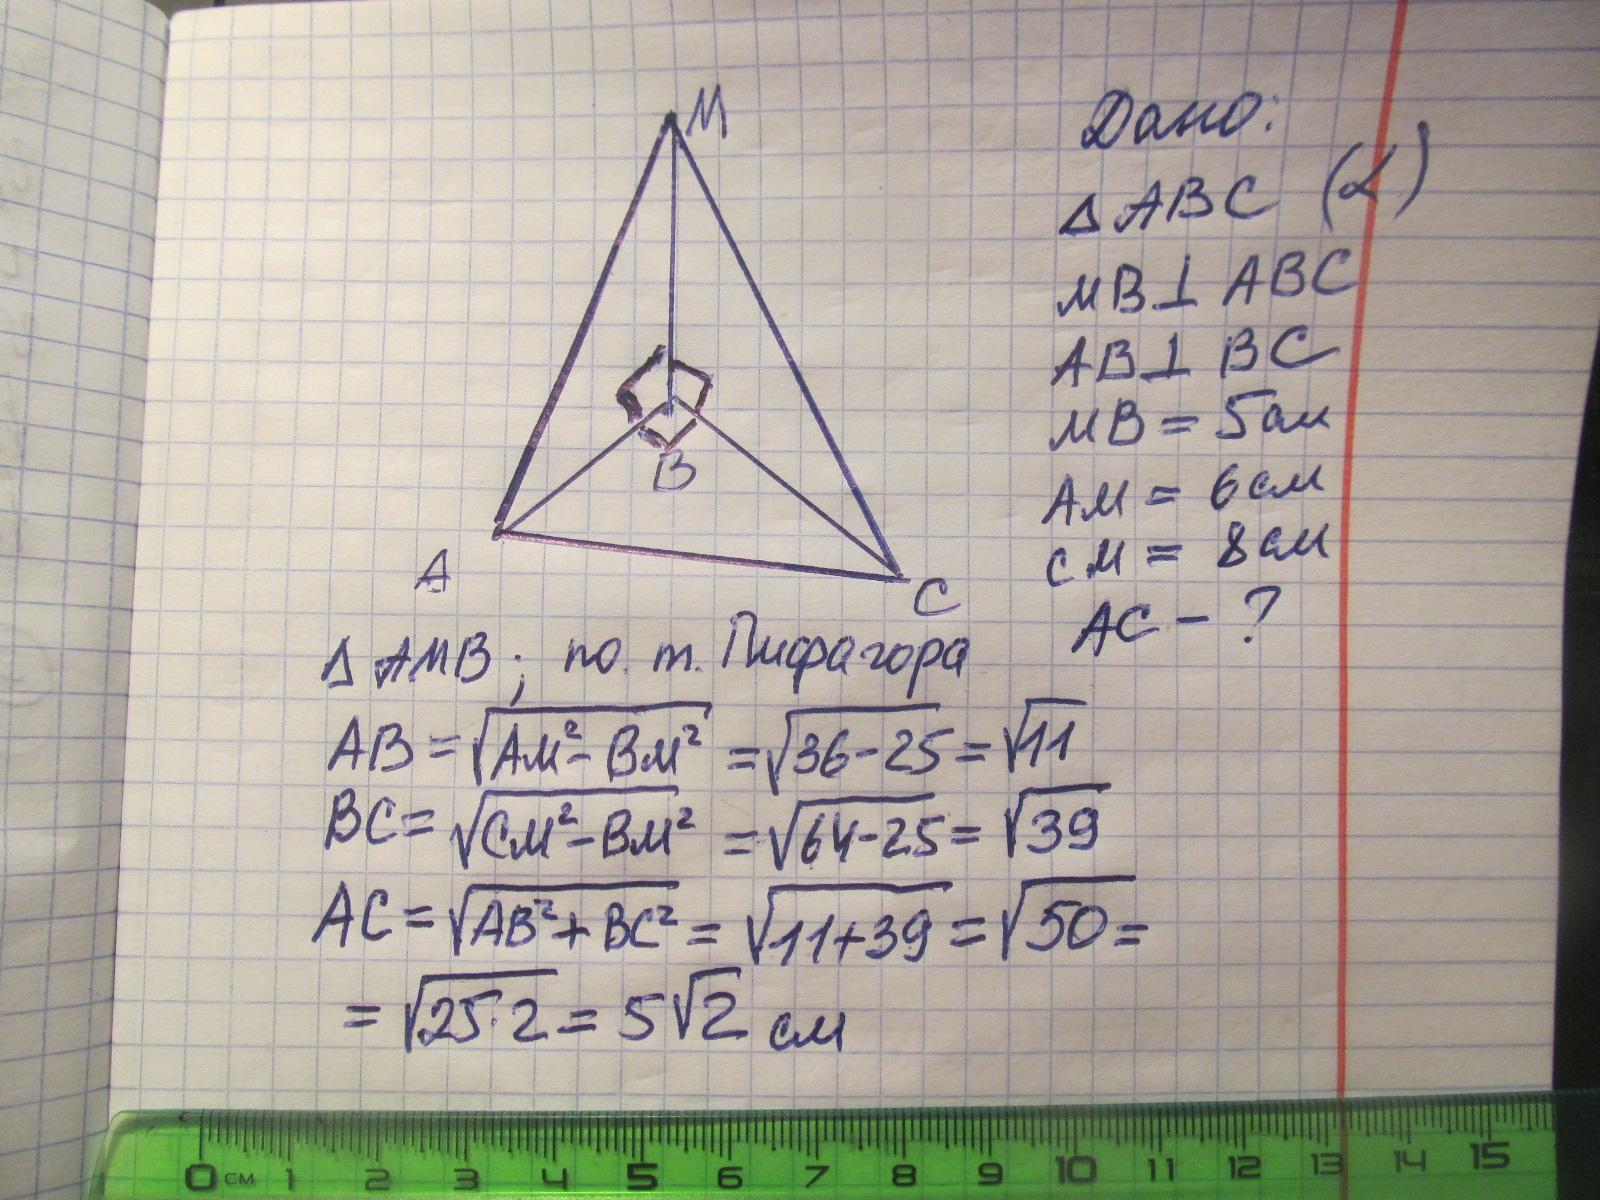 M
B
A
C
Дано:
Δ ABC (α)
MB⊥ ABC
AB⊥ BC
MB = 5см
AM = 6см
CM = 8см
AC – ?
Δ AMB; по т. Пифагора
AB = √(AM² - BM²) = √(36-25) = √11
BC = √(CM² - BM²) = √(64-25) = √39
AC = √(AB² + BC²) = √(11+39) = √50 =
= √(25·2) = 5√2 см
0 см 1 2 3 4 5 6 7 8 9 10 11 12 13 14 15